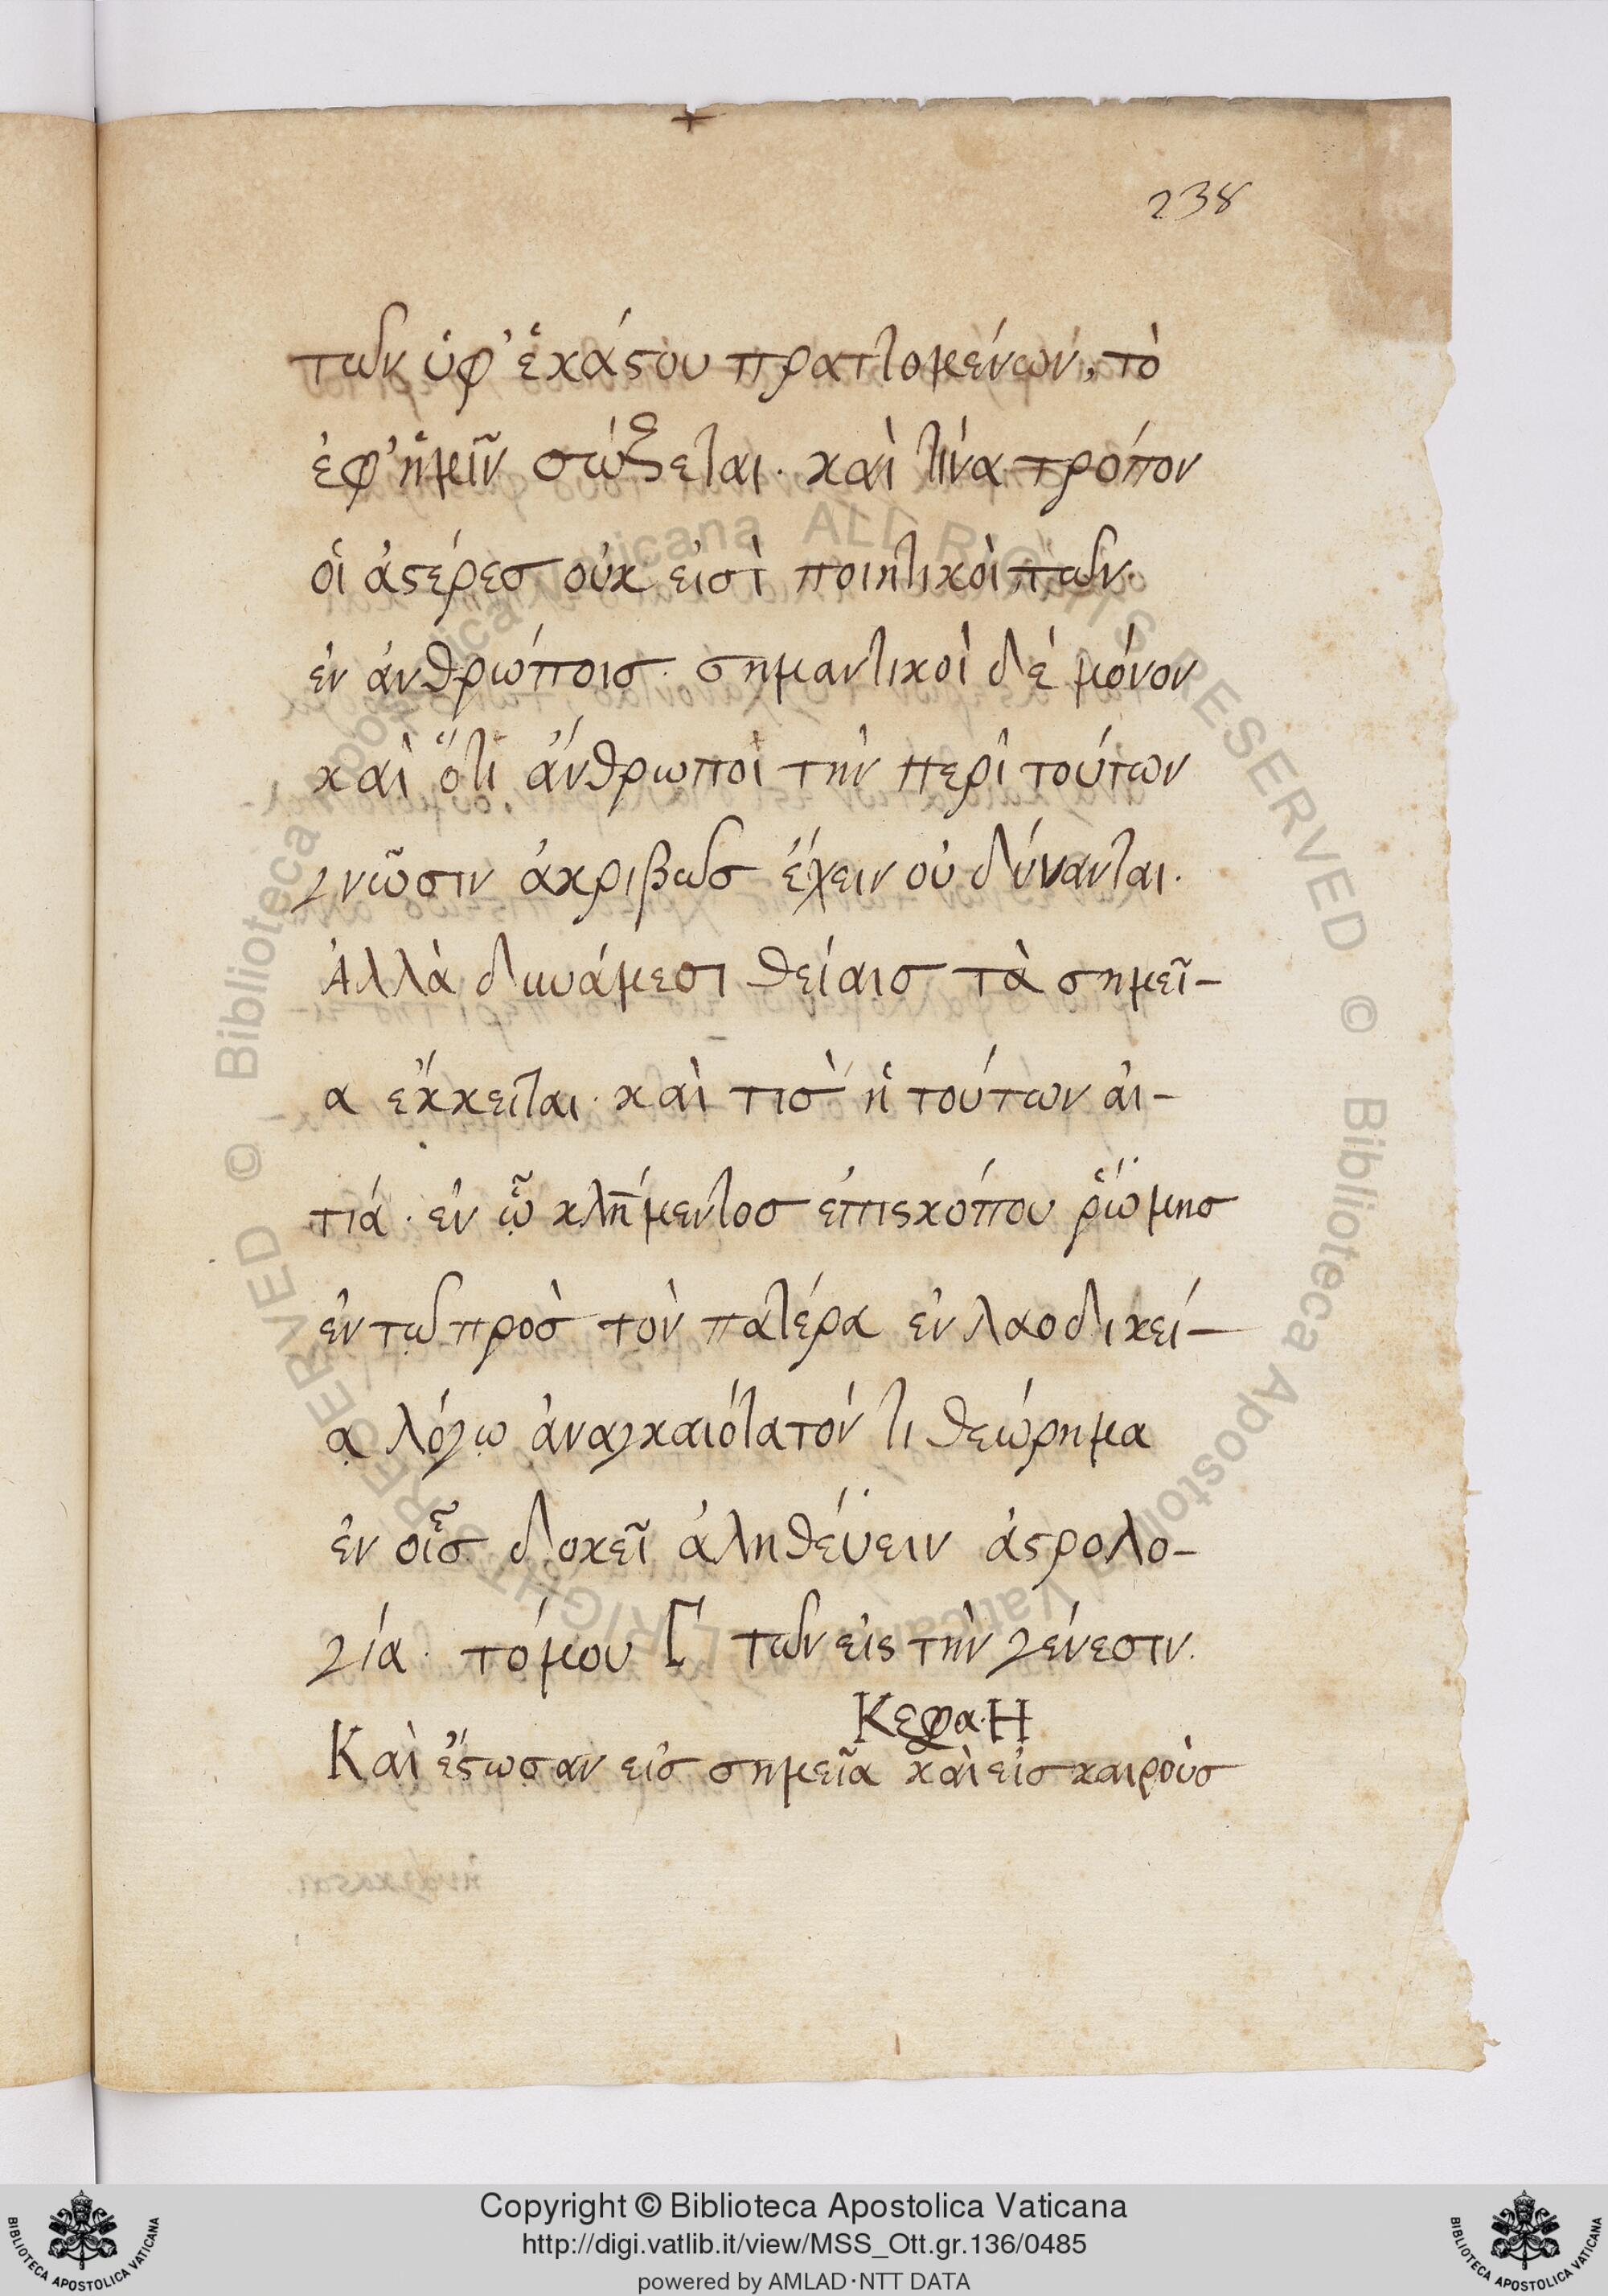 238
τῶν ὑφ' ἑκάστου πραττομένων, τὸ
ἐφ' ἡμῖν σώζεται· καὶ τίνα τρόπον
οἱ ἀστέρες οὐκ εἰσὶ ποιητικοὶ τῶν
ἐν ἀνθρώποις· σημαντικοὶ δὲ μόνον
καὶ ὅτι ἄνθρωποι τὴν περὶ τούτων
γνῶσιν ἀκριβῶς ἔχειν οὐ δύνανται.
Ἀλλὰ δυνάμεσι θείαις τὰ σημεῖ-
α ἔκκειται· καὶ τίς ἡ τούτων αἰ-
τιά· ἐν ᾧ κλήμεντος ἐπισκόπου ῥώμης
ἐν τῷ πρὸς τὸν πατέρα ἐν λαοδικεί-
ᾳ λόγῳ ἀναγκαιότατόν τι θεώρημα
ἐν οἷς δοκεῖ ἀληθεύειν ἀστρολο-
γία· τόμου Γ τῶν εἰς τὴν γένεσιν.
Κεφα· Η
Καὶ ἔστωσαν εἰς σημεῖα καὶ εἰς καιροὺς
© Biblioteca Apostolica Vaticana ALL RIGHTS RESERVED © Biblioteca Apostolica Vaticana ALL RIGHTS RESERVED
BIBLIOTECA APOSTOLICA VATICANA
Copyright © Biblioteca Apostolica Vaticana
http://digi.vatlib.it/view/MSS_Ott.gr.136/0485
powered by AMLAD·NTT DATA
BIBLIOTECA APOSTOLICA VATICANA